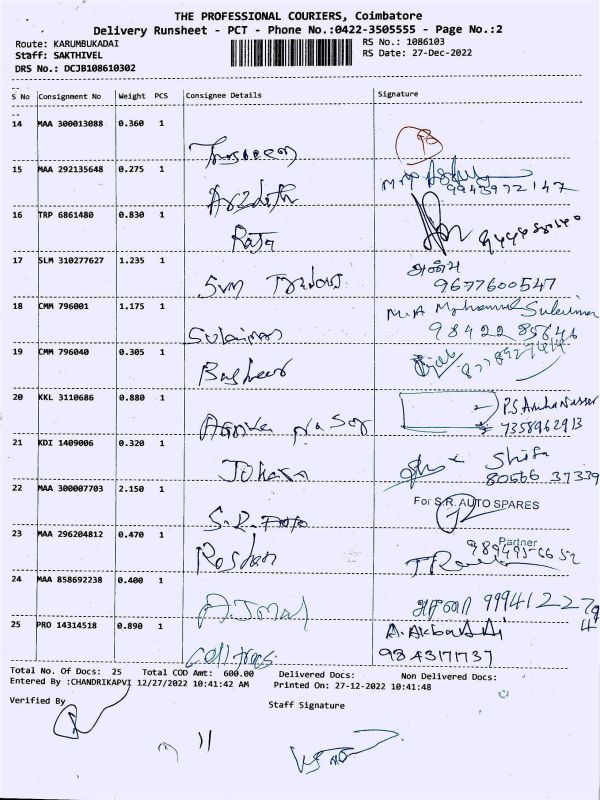 THE PROFESSIONAL COURIERS, Coimbatore
Delivery Runsheet - PCT - Phone No.:0422-3505555 - Page No.:2
Route: KARUMBUKADAI
RS No.: 1086103
Staff: SAKTHIVEL
RS Date: 27-Dec-2022
DRS No.: DCJB108610302
S No Consignment No Weight PCS Consignee Details Signature
14 MAA 300013088 0.360 1
15 MAA 292135648 0.275 1
16 TRP 6861480 0.830 1 Raja
17 SLM 310277627 1.235 1 9677600547
18 CMM 796001 1.175 1 Sulaiman M.A Mohamed Sulaiman
98422 85646
19 CMM 796040 0.305 1 Basheer
20 KKL 3110686 0.880 1 7358962913
21 KDI 1409006 0.320 1 Johara Shifa
80566 37339
22 MAA 300007703 2.150 1 S.R. Auto For S.R. AUTO SPARES
Partner
23 MAA 296204812 0.470 1 Roshan
24 MAA 858692238 0.400 1 A.Jmal
25 PRO 14314518 0.890 1 A. Akbar Ali
Total No. Of Docs: 25 Total COD Amt: 600.00 Delivered Docs: Non Delivered Docs:
Entered By :CHANDRIKAPVI 12/27/2022 10:41:42 AM Printed On: 27-12-2022 10:41:48
Verified By
Staff Signature